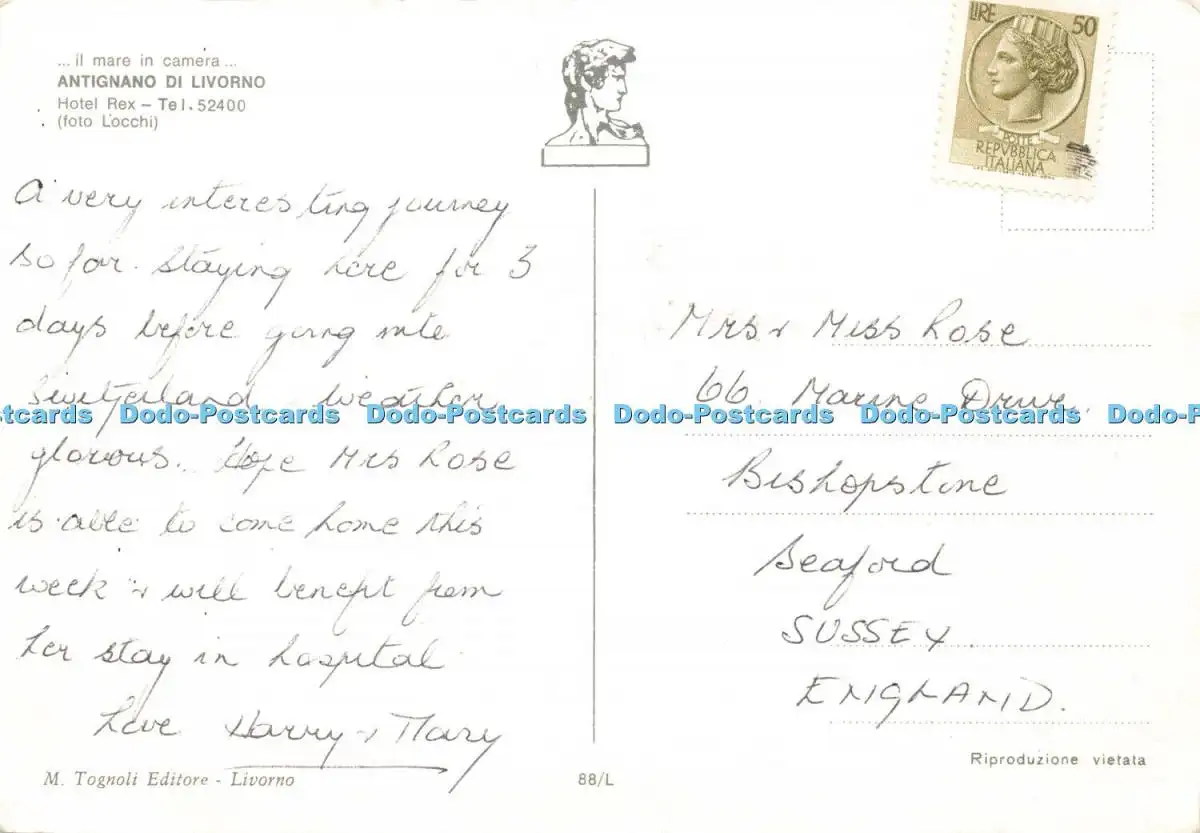 ... il mare in camera ...
ANTIGNANO DI LIVORNO
Hotel Rex – Tel. 52400
(foto Locchi)
LIRE 50
POSTE
REPVBBLICA
ITALIANA
A very interesting journey
so far. Staying here for 3
days before going into
Switzerland. Weather
glorious. Hope Mrs Rose
is able to come home this
week & will benefit from
her stay in hospital.
Love Harry & Mary
Mrs & Miss Rose
66. Marine Drive.
Bishopstone
Seaford
SUSSEX.
ENGLAND.
stcards Dodo-Postcards Dodo-Postcards Dodo-Postcards Dodo-Postcards Dodo-P
M. Tognoli Editore - Livorno
88/L
Riproduzione vietata